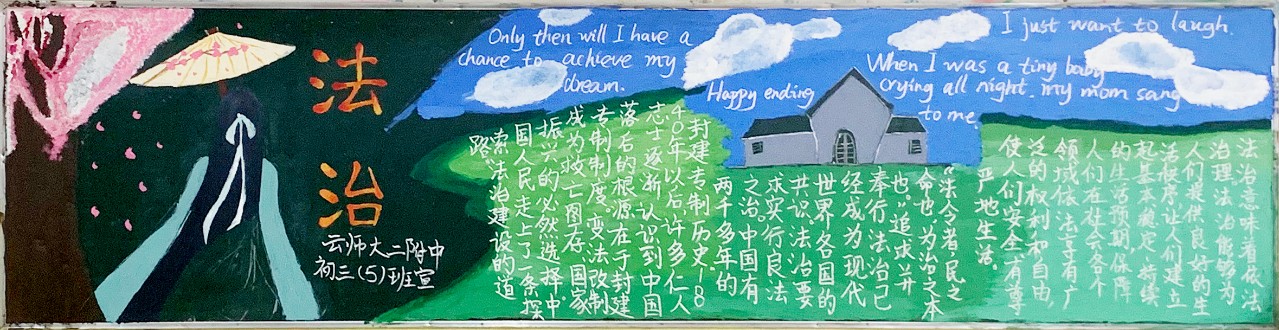 法治
云师大二附中
初三(5)班宣
Only then will I have a
chance to achieve my
dream.
Happy ending
I just want to laugh.
When I was a tiny baby
crying all night, my mom sang
to me
法治意味着依法
治理。法治能够为
人们提供良好的生
活秩序,让人们建立
起基本、稳定、持续
的生活预期,保障
人们在社会各个
领域依法享有广
泛的权利和自由,
使人们安全、有尊
严地生活。
“法令者,民之
命也,为治之本
也。”追求并
奉行法治已
经成为现代
世界各国的
共识。法治要
求实行良法
之治。中国有
两千多年的
封建专制历史,18
40年以后许多仁人
志士逐渐认识到中国
落后的根源在于封建
专制制度。变法改制
成为救亡图存、国家
振兴的必然选择。中
国人民走上了一条探
索法治建设的道
路。